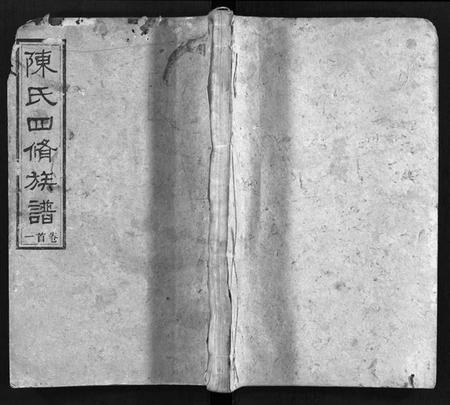 陳氏四脩族譜
卷首一